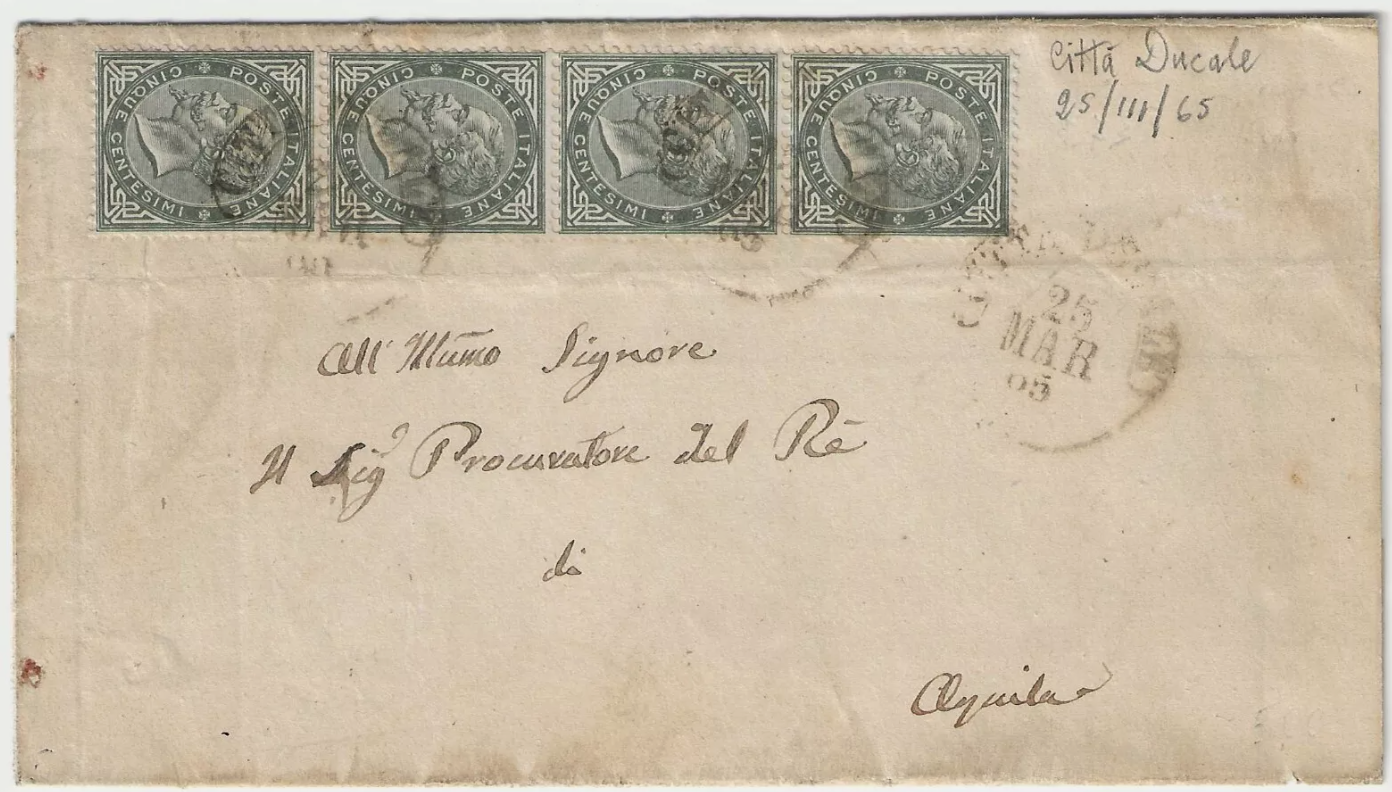 POSTE ITALIANE CINQUE CENTESIMI
POSTE ITALIANE CINQUE CENTESIMI
POSTE ITALIANE CINQUE CENTESIMI
POSTE ITALIANE CINQUE CENTESIMI
Città Ducale
25/III/65
25
MAR
65
All' Illumo Signore
Il Sigr Procuratore del Rè
di
Aquila